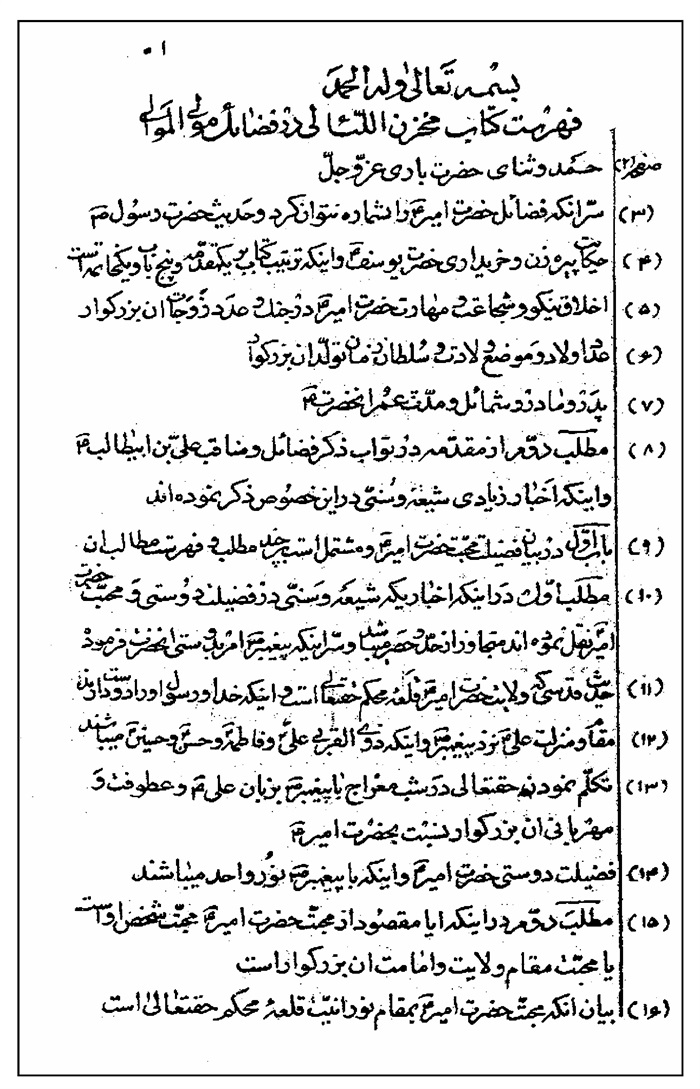 ۰۱
بسمه تعالی وله الحمد
فهرست کتاب مخزن اللئالی در فضائل مولی الموالی
صفحه (۲) حمد و ثنای حضرت باری عزّ و جلّ
(۳) سرّ انکه فضائل حضرت امیر ع را نشماره نتوان کرد و حدیث حضرت رسول ص
(۴) حکایت پیره زن و خریداری حضرت یوسف ع و اینکه ترتیب کتاب بر یکمقدمه و پنج باب و یکخاتمه است
(۵) اخلاق نیکو و شجاعت و مهارت حضرت امیر ع در جنک و عدد زوجات ان بزرکوار
(۶) عدد اولاد و موضع ولادت و سلطان زمان تولّد ان بزرکوار
(۷) پدر و مادر و شمائل و مدّت عمر انحضرت ع
(۸) مطلب دوّم از مقدّمه در ثواب ذکر فضائل و مناقب علیّ بن ابیطالب ع
و اینکه اخبار زیادی شیعه و سنّی در این خصوص ذکر نموده اند
(۹) باب اوّل در بیان فضیلت محبّت حضرت امیر ع و مشتمل است بر چند مطلب و فهرست مطالب ان
(۱۰) مطلب اوّل در اینکه اخباریکه شیعه و سنّی در فضیلت دوستی و محبّت حضرت
امیر ع نقل نموده اند متجاوز از حدّ و حصر میباشد و سرّ اینکه پیغمبر ص امر بدوستی انحضرت فرمود
(۱۱) حدیث قدسی که ولایت حضرت امیر ع قلعه محکم حقتعالی است و اینکه خدا و رسول او را دوست دارند
(۱۲) مقام و منزلت علی ع نزد پیغمبر ص و اینکه ذوی القربی علی ع و فاطمه ع و حسن ع و حسین ع میباشند
(۱۳) تکلّم نمودن حقتعالی در شب معراج با پیغمبر ص بزبان علی ع و عطوفت و
مهربانی ان بزرکوار نسبت بحضرت امیر ع
(۱۴) فضیلت دوستی حضرت امیر ع و اینکه با پیغمبر ص نور واحد میباشند
(۱۵) مطلب دوّم در اینکه ایا مقصود از محبّت حضرت امیر ع محبّت شخص او است
یا محبّت مقام ولایت و امامت ان بزرکوار است
(۱۶) بیان انکه محبّت حضرت امیر ع بمقام نورانیّت قلعه محکم حقتعالی است